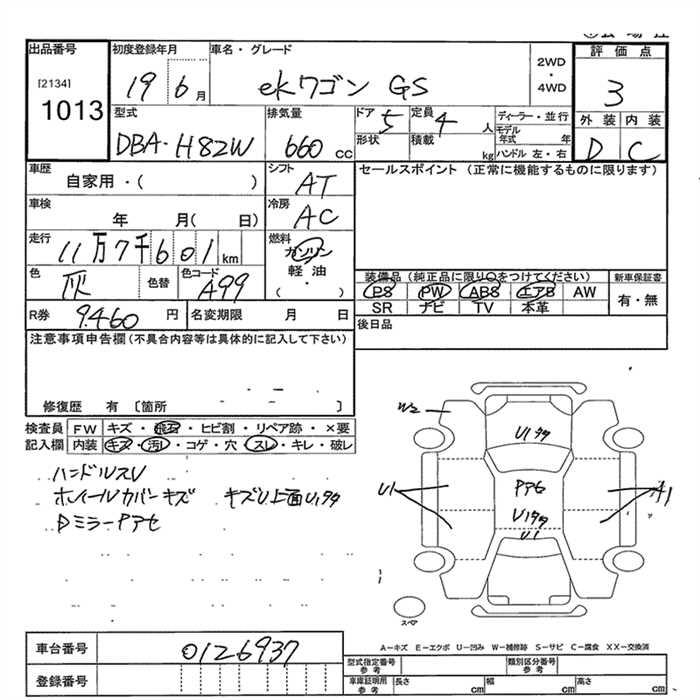 出品番号 初度登録年月 車名・グレード 2WD・4WD 評価点
[2134] 1013 19 6月 ekワゴン GS 3
型式 排気量 ドア 5 定員 4人 ディーラー・並行 外装 内装
DBA-H82W 660cc 形状 積載 kg モデル年式 年 ハンドル 左・右 D C
車歴 シフト セールスポイント (正常に機能するものに限ります)
自家用・( ) AT
車検 冷房
年 月( 日) AC
走行 燃料
11万7千601km ガソリン
色 色替 色コード 軽油 装備品(純正品に限り○をつけてください) 新車保証書
灰 A99 ・( ) PS PW ABS エアB AW 有・無
SR ナビ TV 本革
R券 9,460円 名変期限 月 日 後日品
注意事項申告欄(不具合内容等は具体的に記入して下さい)
修復歴 有 〔箇所 〕
検査員 FW キズ・飛石・ヒビ割・リペア跡・×要
記入欄 内装 キズ・汚レ・コゲ・穴・スレ・キレ・破レ
ハンドルスレ
ホイールカバーキズ
Dミラーアセ
W2
U1タタ
U1
Pアセ
U1タタ
U1
A1
スペア
車台番号 0126937
A－キズ E－エクボ U－凹み W－補修跡 S－サビ C－腐食 XX－交換済
登録番号
型式指定番号 参考 類別区分番号 参考
車庫証明用 参考 長さ cm 幅 cm 高さ cm